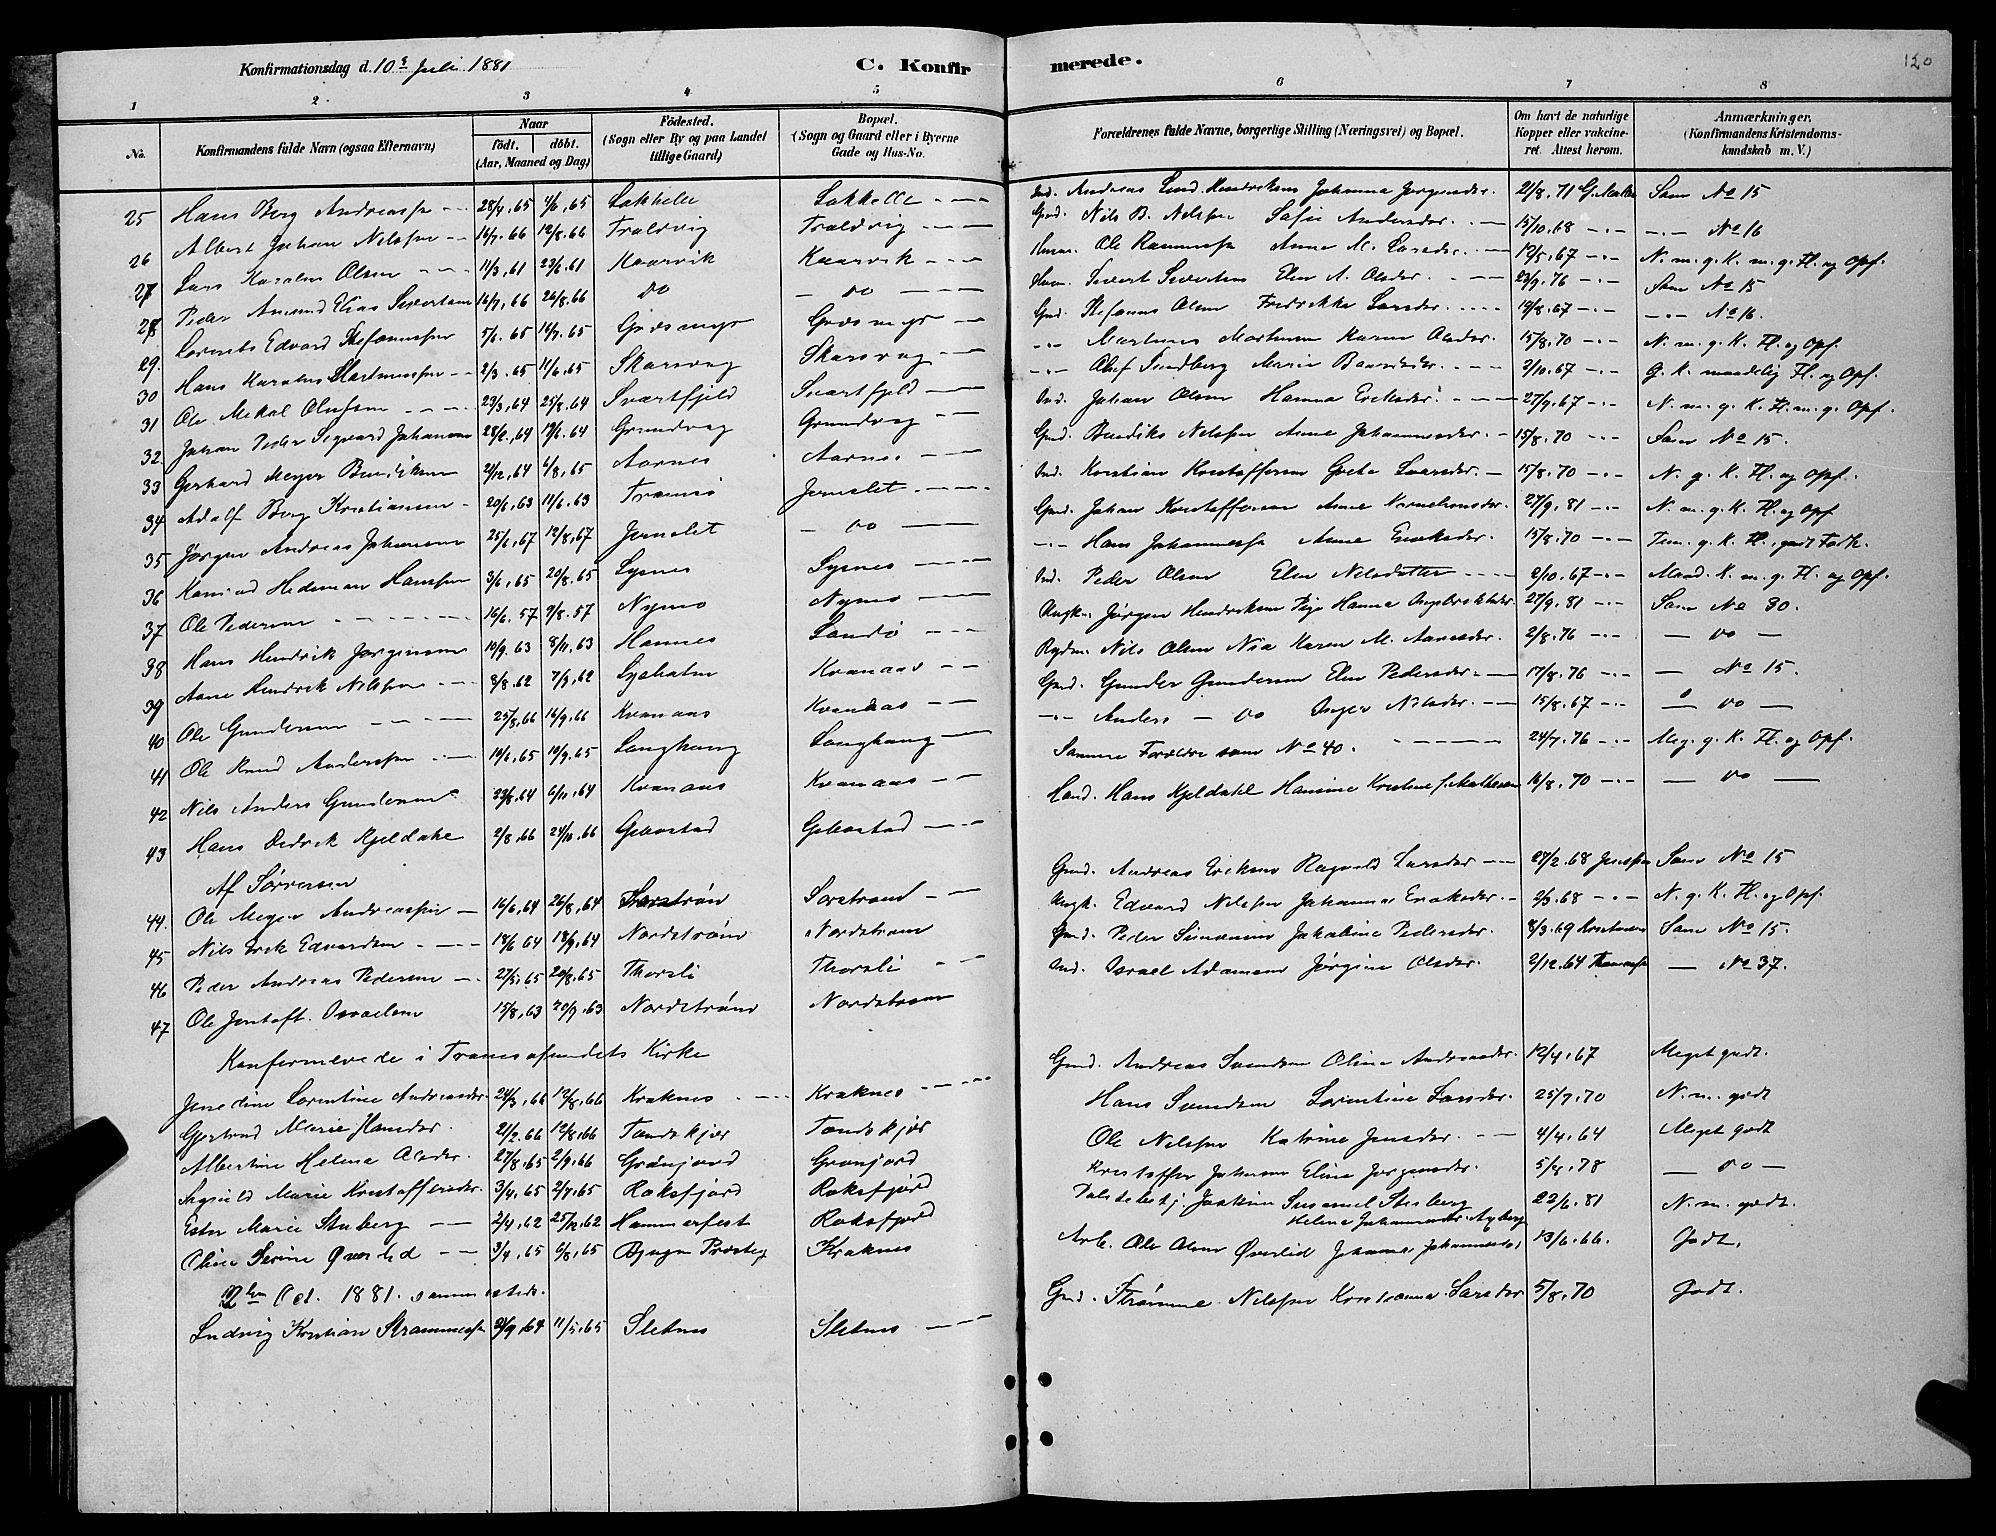 Konfirmationsdag d. 10de Juli 1881 C. Konfirmerede. 120
1 2 3 4 5 6 7 8
No. Konfirmandens fulde Navn (ogsaa Efternavn) Naar födt. döbt. (Aar, Maaned og Dag) Födested. (Sogn eller By og paa Landet tillige Gaard) Bopæl. (Sogn og Gaard eller i Byerne Gade og Hus-No. Forældrenes fulde Navne, borgerlige Stilling (Næringsvei) og Bopæl. Om havt de naturlige Kopper eller vakcineret. Attest herom. Anmærkninger. (Konfirmandens Kristendomskundskab m. V.)
25 Hans Berg Andreassen 28/4.65 4/6.65 Lakselle Lakselle Ind. Andreas Hendriksen Johanna Jørgensdr. 21/8.71 Som No 15
26 Albert Johan Nilssen 16/7.66 12/8.66 Traldvig Traldvig Gmd. Nils B. Nilssen Sofie Andersdr. 15/10.68 No 16
27 Lars Karelius Olsen 11/3.61 23/6.61 Kaarvik Kaarvik Ole Rasmussen Anne M. Larsdr. 12/5.67 N. m. g. K. m. g. Fl. og Opf.
28 Peder Amund Elias Sivertsen 16/7.66 26/8.66 do do Sivert Sivertsen Elen A. Olsdr. 23/9.76 Som No 15
29. Lorents Edvard Stefanussen 5/6.65 16/7.65 Grasmyr Grasmyr Gmd. Stefanus Olsen Fredrikke Larsdr. 12/8.67 No 16.
30 Hans Karelius Martinussen 2/3.65 11/6.65 Skarsvag Skarsvag Martinus Karen Olsdr. 15/8.70 N. m. g. K. Fl. og Opf.
31 Ole Mikal Olufsen 23/3.64 25/8.64 Svartfjeld Svartfjeld Oluf Sundberg Marie 2/10.67 G. K. maadelig Fl. og Opf.
32. Johan Peder Sigvard Johansen 28/2.64 19/6.64 Grundvag Grundvag Ind. Johan Olsen Hanna Eriksdr. 27/9.67 N. m. g. K. Fl. m. g. Opf.
33 Gerhard Meyer Bendiksen 21/12.64 4/8.65 Aarnes Aarnes Gmd. Bendiks Nilssen Anne Johannesdr. 15/8.70 Som No 15.
34 Adolf Berg Kristiansen 20/1.63 11/6.63 Tromsø Jernslet Ind. Kristian Kristoffersen Grete Larsdr. 15/8.70 N. g. K. Fl. og Opf.
35 Jørgen Andreas Johansen 25/6.67 12/8.67 Jernslet do Gmd. Johan Kristoffersen Anne Korneliusdr. 27/9.81 N. m. g. K. Fl. og Opf
36 Konrad Hedeman Hanssen 3/6.65 20/8.65 Lysnes Lysnes Hans Johannessen Anne Eriksdr. 15/8.70 Tem. g. K. Fl. godt Forh.
37 Ole Pedersen 16/6.57 9/8.57 Nymo Nymo Ind. Peder Olsen Elen Nilsdatter 2/10.67 Maad. K. m. g. Fl. og Opf.
38 Hans Hendrik Jørgensen 10/9.63 8/11.63 Hannes Sandø Ungk. Jørgen Hendriksen Pige Hanna 27/9.81 Som No 30.
39 Arne Hendrik Nilssen 8/8.62 7/9.62 Lysbotn Kvanaas Nils Olsen Nia Karen M. Arnesdr. 2/8.76 do
40 Ole Gundersen 25/8.66 16/9.66 Kvanaas Kvanaas Gmd. Gunder Gundersen Elen Pedersdr. 17/8.76 No 15.
41 Ole Knud Anderssen 10/6.65 10/9.65 Langhaug Langhaug Anders do Inger Nilsdr. 15/8.67 do
42 Nils Anders Gundersen 23/8.64 6/11.64 Kvanaas Kvanaas Samme Forældre som No 40. 24/7.76 Meg. g. K. Fl. og Opf.
43 Hans Didrik Kjeldahl 2/8.66 24/10.66 Gebostad Gebostad Hand. Hans Kjeldahl Hansine Kristine f. Mathesen 16/8.70 do
Af Sørreisen
44. Ole Meyer Andreassen 16/6.64 26/8.64 Sørstrøm Sørstrøm Gmd. Andreas Eriksen Ragnild Larsdr. 28/2.68 Jenssen Som No 15
45 Nils Erik Edvardsen 18/6 64 18/9.64 Nordstrøm Nordstrøm Ungk. Edvard Nilssen Johanna Eriksdr. 2/3.68 N. g. K. Fl. og Opf
46 Peder Andreas Pedersen 27/5.65 20/8.65 Thorsli Thorsli Gmd. Peder Simonsen Jakobine Pedersdr. 8/3.69 Som No 15.
47 Ole Jentoft Israelsen 15/8.63 20/9.63 Nordstrøm Nordstrøm Ind. Israel Adamsen Jørgine Olsdr. 2/12.64 No 37.
Konfirmerede i Tromsøsundets Kirke
Jensine Lorentine Andreasdr. 24/3.66 12/8.66 Kraknes Kraknes Gmd. Andreas Svendsen Oline Andreasdr. 12/4.67 Meget godt.
Gjertrud Marie Hansdr. 2/2.66 12/8.66 Tandskjær Tandskjær Hans Svendsen Lorentine Larsdr. 25/7.70 N. m. godt
Albertine Helena Olsdr. 27/8.65 2/9.66 Grønjord Grønjord Ole Nilssen Katrine Jensdr. 4/4.64 Meget godt
Signild Marie Kristoffersdr. 3/4.65 2/7.65 Roksfjord Roksfjord Kristoffer Johansen Eline Jørgensdr. 5/8.78 do
Ester Marie Stuberg 2/4.62 25/12.62 Hammerfest Roksfjord Helena Johannesdr. 23/6.81 N. m. godt.
Oline Serine Øverlid 3/4.65 6/8.65 Bjugn Præstg Kraknes Arb. Ole Olsen Øverlid Johanna Johannesdr. 13/6.66. Godt.
2den Oct. 1881. samme steds.
Ludvig Kristian Strømmessen 21/9.64 11/5.65 Sletnes Sletnes Gmd. Strømme Nilssen Kristianna Larsdr 5/8.70 Godt.